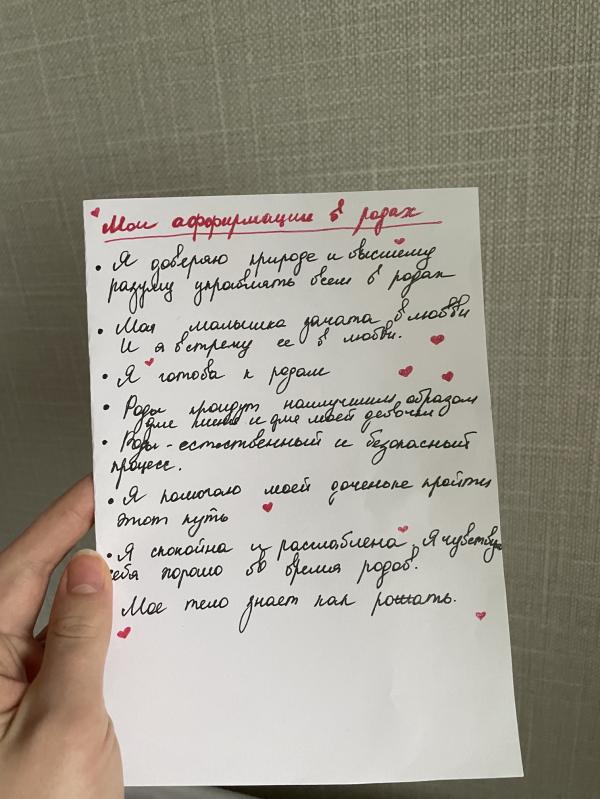 Мои аффирмации в родах
• Я доверяю природе и высшему
разуму управлять всем в родах
• Моя малышка зачата в любви
И я встречу ее в любви.
• Я готова к родам
• Роды пройдут наилучшим образом
для меня и для моей девочки
• Роды - естественный и безопасный
процесс.
• Я помогаю моей доченьке пройти
этот путь
• Я спокойна и расслаблена. Я чувствую
себя хорошо во время родов.
Мое тело знает как рожать.